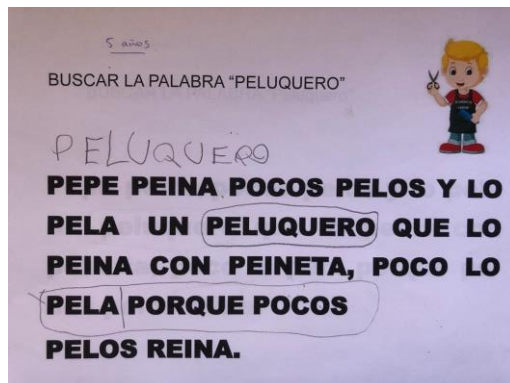 5 años
BUSCAR LA PALABRA “PELUQUERO”
PELUQUERO
PEPE PEINA POCOS PELOS Y LO
PELA UN PELUQUERO QUE LO
PEINA CON PEINETA, POCO LO
PELA PORQUE POCOS
PELOS REINA.